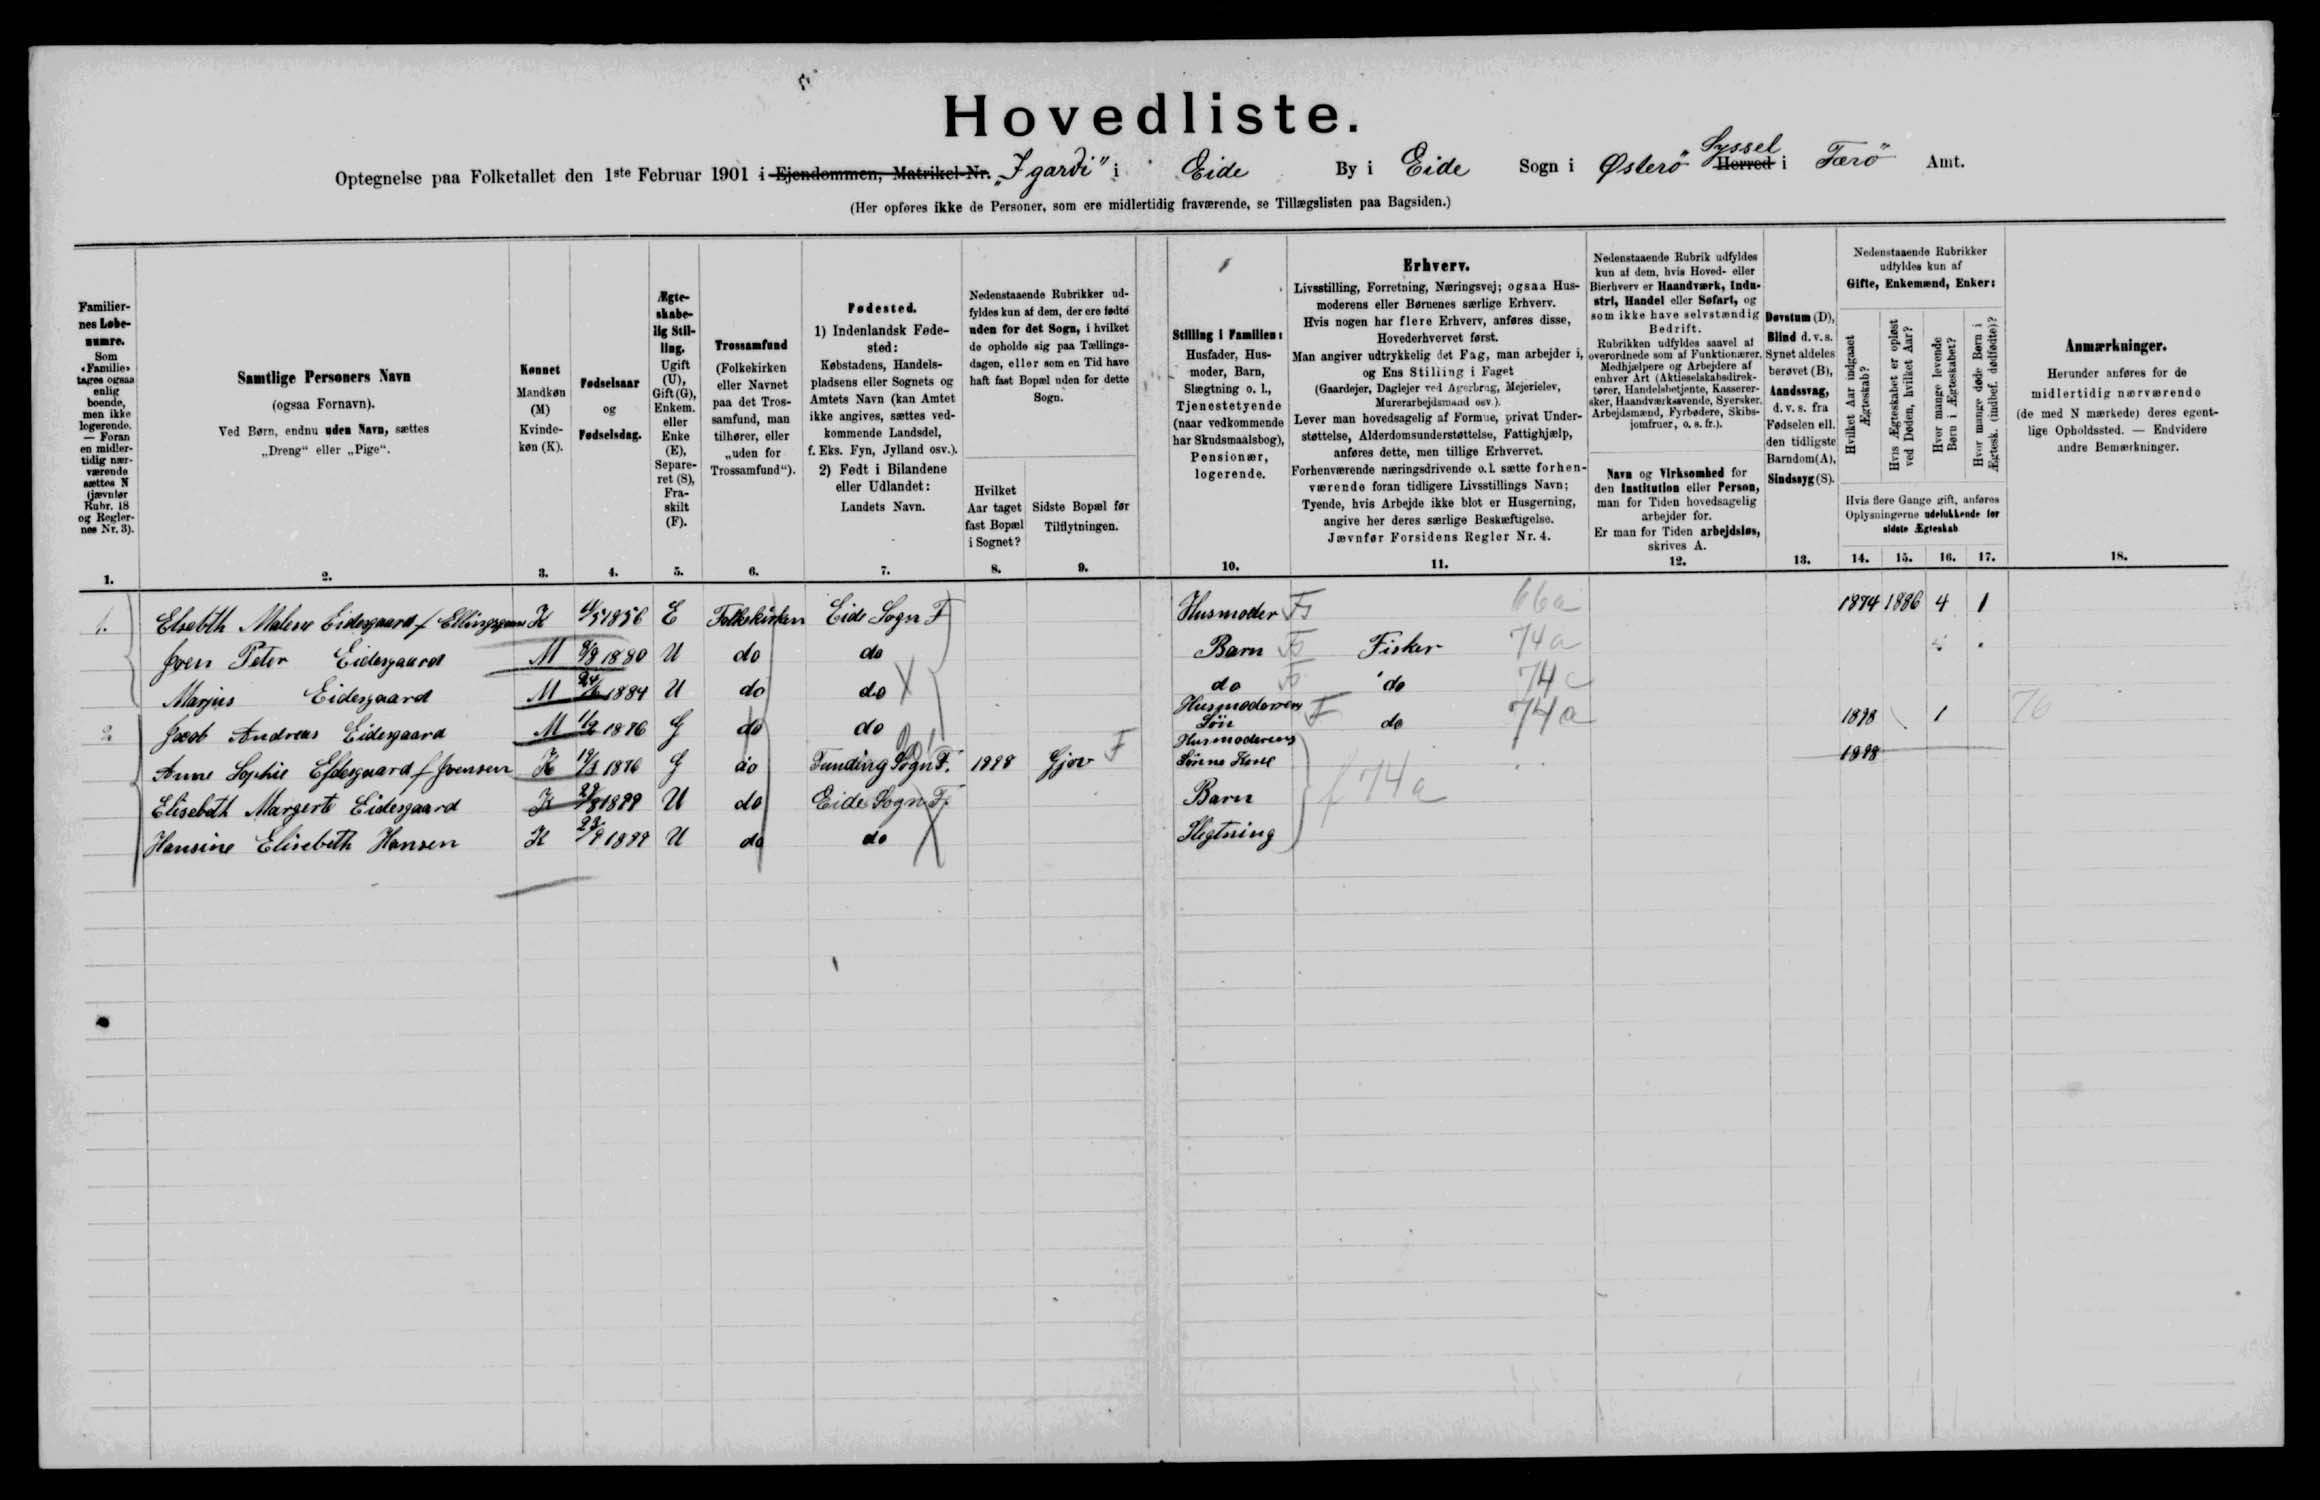 Hovedliste.
Optegnelse paa Folketallet den 1ste Februar 1901 i Ejendommen, Matrikel-Nr. „I gardi" i Eide By i Eide Sogn i Østerö Herred Syssel i Færö Amt.
(Her opføres ikke de Personer, som ere midlertidig fraværende, se Tillægslisten paa Bagsiden.)
Familier-
nes Løbe-
numre.
Som
«Familie»
tages ogsaa
enlig
boende,
men ikke
logerende.
— Foran
en midler-
tidig nær-
værende
sættes N
(jævnfør
Rubr. 18
og Regler-
nes Nr. 3).
1.
Samtlige Personers Navn
(ogsaa Fornavn).
Ved Børn, endnu uden Navn, sættes
„Dreng" eller „Pige".
2.
Kønnet
Mandkøn
(M)
Kvinde-
køn (K).
3.
Fødselsaar
og
Fødselsdag.
4.
Ægte-
skabe-
lig Stil-
ling.
Ugift
(U),
Gift (G),
Enkem.
eller
Enke
(E),
Separe-
ret (S),
Fra-
skilt
(F).
5.
Trossamfund
(Folkekirken
eller Navnet
paa det Tros-
samfund, man
tilhører, eller
„uden for
Trossamfund").
6.
Fødested.
1) Indenlandsk Føde-
sted:
Købstadens, Handels-
pladsens eller Sognets og
Amtets Navn (kan Amtet
ikke angives, sættes ved-
kommende Landsdel,
f. Eks. Fyn, Jylland osv.).
2) Født i Bilandene
eller Udlandet:
Landets Navn.
7.
Nedenstaaende Rubrikker ud-
fyldes kun af dem, der ere fødte
uden for det Sogn, i hvilket
de opholde sig paa Tællings-
dagen, eller som en Tid have
haft fast Bopæl uden for dette
Sogn.
Hvilket
Aar taget
fast Bopæl
i Sognet?
8.
Sidste Bopæl før
Tilflytningen.
9.
Stilling i Familien:
Husfader, Hus-
moder, Barn,
Slægtning o. l.,
Tjenestetyende
(naar vedkommende
har Skudsmaalsbog),
Pensionær,
logerende.
10.
Erhverv.
Livsstilling, Forretning, Næringsvej; ogsaa Hus-
moderens eller Børnenes særlige Erhverv.
Hvis nogen har flere Erhverv, anføres disse,
Hovederhvervet først.
Man angiver udtrykkelig det Fag, man arbejder i,
og Ens Stilling i Faget
(Gaardejer, Daglejer ved Agerbrug, Mejerielev,
Murerarbejdsmand osv.).
Lever man hovedsagelig af Formue, privat Under-
støttelse, Alderdomsunderstøttelse, Fattighjælp,
anføres dette, men tillige Erhvervet.
Forhenværende næringsdrivende o. l. sætte forhen-
værende foran tidligere Livsstillings Navn;
Tyende, hvis Arbejde ikke blot er Husgerning,
angive her deres særlige Beskæftigelse.
Jævnfør Forsidens Regler Nr. 4.
11.
Nedenstaaende Rubrik udfyldes
kun af dem, hvis Hoved- eller
Bierhverv er Haandværk, Indu-
stri, Handel eller Søfart, og
som ikke have selvstændig
Bedrift.
Rubrikken udfyldes saavel af
overordnede som af Funktionærer,
Medhjælpere og Arbejdere af
enhver Art (Aktieselskabsdirek-
tører, Handelsbetjente, Kasserer-
sker, Haandværkssvende, Syersker,
Arbejdsmænd, Fyrbødere, Skibs-
jomfruer, o. s. fr.).
Navn og Virksomhed for
den Institution eller Person,
man for Tiden hovedsagelig
arbejder for.
Er man for Tiden arbejdsløs,
skrives A.
12.
Døvstum (D),
Blind d. v. s.
Synet aldeles
berøvet (B),
Aandssvag,
d. v. s. fra
Fødselen ell.
den tidligste
Barndom (A),
Sindssyg (S).
13.
Nedenstaaende Rubrikker
udfyldes kun af
Gifte, Enkemænd, Enker:
Hvilket Aar indgaaet
Ægteskab?
Hvis Ægteskabet er opløst
ved Døden, hvilket Aar?
Hvor mange levende
Børn i Ægteskabet?
Hvor mange døde Børn i
Ægtesk. (indbef. dødfødte)?
Hvis flere Gange gift, anføres
Oplysningerne udelukkende for
sidste Ægteskab
14. 15. 16. 17.
Anmærkninger.
Herunder anføres for de
midlertidig nærværende
(de med N mærkede) deres egent-
lige Opholdssted. — Endvidere
andre Bemærkninger.
18.
1. Elsebth Malene Eidesgaard f Ellingsgaard K 1856 E Folkekirken Eide Sogn F Husmoder F 66a 1874 1886 4 1
Joen Peter Eidesgaard M 1880 U do do Barn F Fisker 74a
Marjus Eidesgaard M 24/6 1884 U do do do F do 74c
2. Jacob Andreas Eidesgaard M 1876 G do do Husmoderens Søn F do 74a 1898 1 76
Anne Sophie Eidesgaard f Joensen K 1876 G do Funding Sogn F. 1898 Gjov F Husmoderens Sönne Kone 1898
Elisebeth Margerte Eidesgaard K 29/8 1899 U do Eide Sogn F. Barn f 74a
Hansine Elisebeth Hansen K 23/9 1899 U do do Slegtning